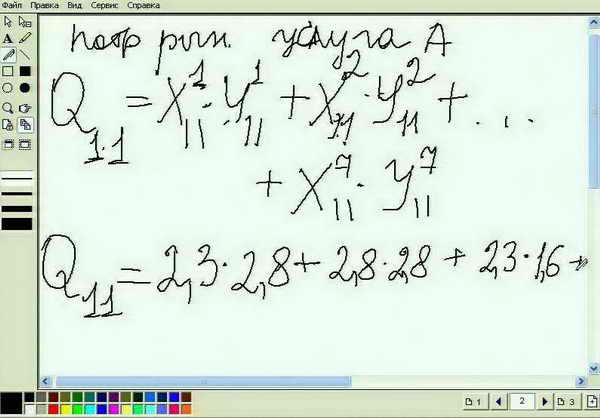 Файл Правка Вид Сервис Справка
потр рын. услуга А
Q₁.₁ = X¹₁₁·Y¹₁₁ + X²₁₁·Y²₁₁ + ...
+ X⁷₁₁· Y⁷₁₁
Q₁₁ = 2,3·2,8 + 2,8·2,8 + 2,3·1,6 +
1 2 3